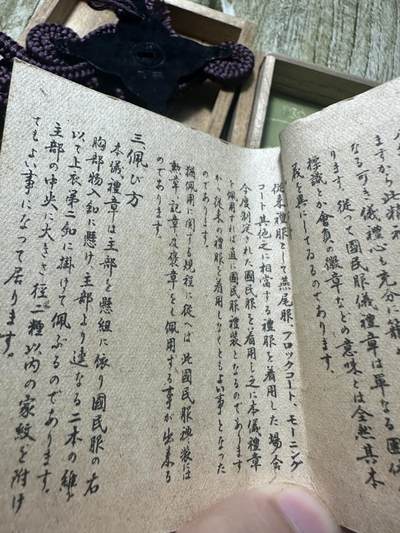 ますから此精神
なる可き儀禮心も充分に籠
ります。從つて國民服儀禮章は單なる團体
標識とか會員の徽章などの意味とは全然其本
質を異にしてゐるのであります。
從來禮服として燕尾服、フロックコート、モーニング
コート其他之に相當する禮服を着用した場合
今度制定された國民服を着用し之に本儀禮章
を佩用すれば直に國民服禮裝となるのであります
から、從来の禮服を着用しなくともよい事となった
のであります。
佩用に関する規程に從へば此國民服禮装には
勲章、記章及褒章をも佩用する事が出來る
のであります。
三、佩び方
本儀禮章は主部を懸紐に依り國民服の右
胸部物入釦に懸け、主部より連なる二本の
以て上衣第二釦に掛けて佩ぶるのであります。
主部の中央に大きさ径二糎以内の家紋を附け
てもよい事になって居ります。